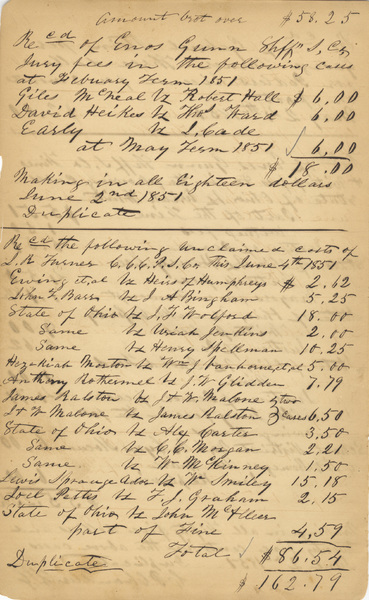 Amount brot over $58.25
Recd of Enos Gunn Shff S. Co
Jury fees in the following cases
at February Term 1851
Giles McNeal vs Robert Hall $6.00
David Heikes vs Thos Ward 6.00
Early vs S. Cade
at May Term 1851 6.00
$18.00
Making in all Eighteen dollars
June 2nd 1851
Duplicate
Recd the following unclaimed costs of
L. R. Turner C.C.C.P.S.Co. this June 4th 1851
Ewing et,al vs Heirs of Humphreys $2.62
John F Barr vs J A Bingham 5.25
State of Ohio vs J. F Wolford 18.00
Same vs Uriah Jenkins 2.00
Same vs Henry Spellman 10.25
Hezekiah Morton vs Wm J Vanhorne,et,al 5.00
Anthony Rothermel vs J. W. Glidden 7.79
James Ralston vs J & W. Malone & two
J & W Malone vs James Ralston cases 6,50
State of Ohio vs Alex Carter 3,50
Same vs C. C. Morgan 2,21
Same vs W McKinney 1.50
Lewis Sprouge Ador vs W Smiley 15.18
Joel Pettis vs F. J. Graham 2.15
State of Ohio vs John McAleer
part of Fine 4,59
Total $86.54
Duplicate $162.79